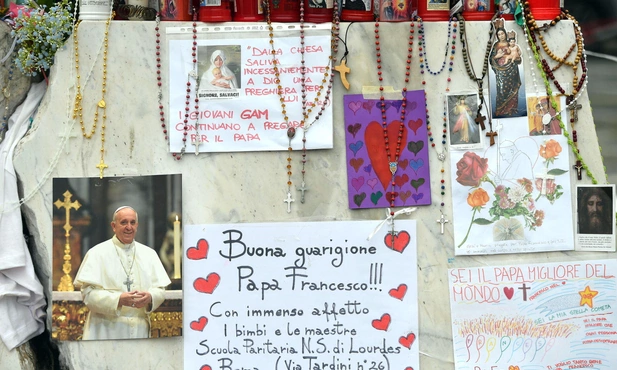 DALLA CHIESA
SALIVA
INCESSANTEMENTE
A DIO UNA
PREGHIERA PER
LUI
SIGNORE, SALVACI
I GIOVANI GAM
CONTINUANO A PREGARE
PER IL PAPA
Buona guarigione
Papa Francesco!!!
Con immenso affetto
I bimbi e le maestre
Scuola Paritaria N.S. di Lourdes
Roma (Via Tardini n° 26)
SEI IL PAPA MIGLIORE DEL
MONDO
LA MIA STELLA COMETA
PAPA
FRANCESCO